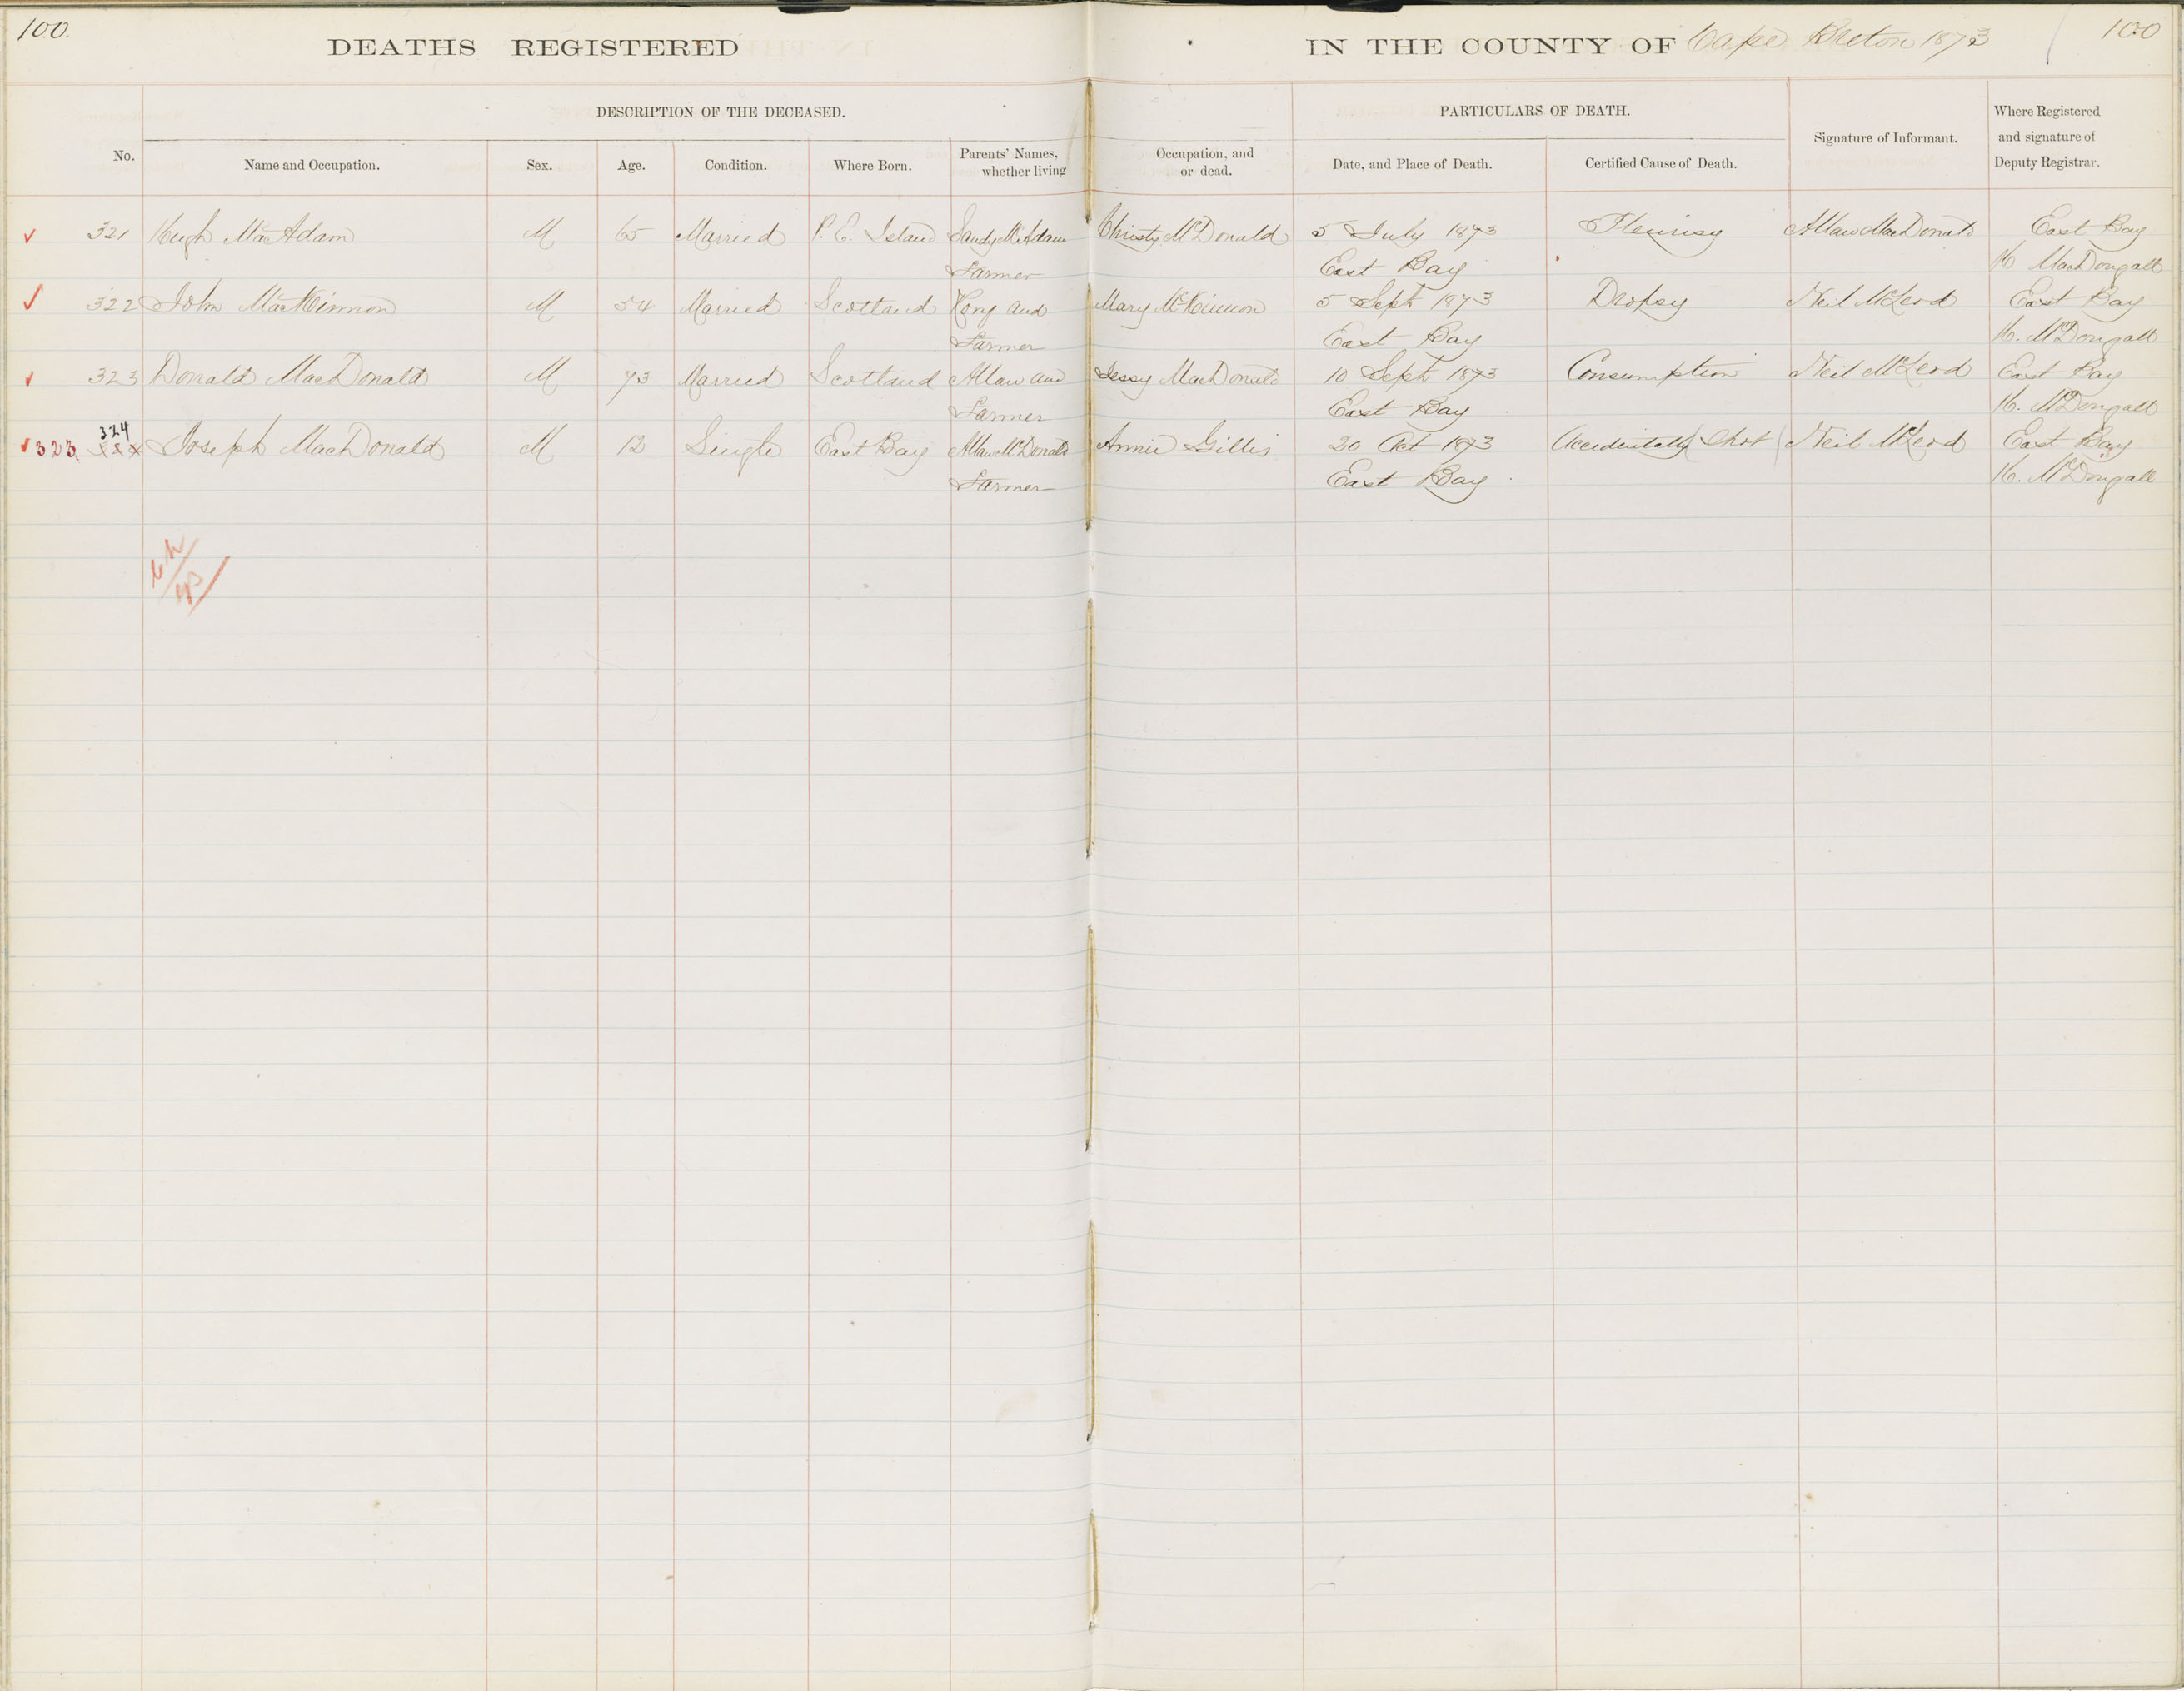 100.
DEATHS REGISTERED IN THE COUNTY OF Cape Breton 1873 100
DESCRIPTION OF THE DECEASED. PARTICULARS OF DEATH.
No. Name and Occupation. Sex. Age. Condition. Where Born. Parents' Names, whether living Occupation, and or dead. Date, and Place of Death. Certified Cause of Death. Signature of Informant. Where Registered and signature of Deputy Registrar.
321 Hugh MacAdam M 65 Married P. E. Island Sandy McAdam Christy McDonald 5 July 1873 Pleurisy Allan MacDonald East Bay
Farmer East Bay H MacDougall
322 John MacKinnon M 54 Married Scotland Rory and Mary McKinnon 5 Sept 1873 Dropsy Neil McLeod East Bay
Farmer East Bay H. McDougall
323 Donald MacDonald M 73 Married Scotland Allan and Jessy MacDonald 10 Sept 1873 Consumption Neil McLeod East Bay
Farmer East Bay H. McDougall
323 324 Joseph MacDonald M 12 Single East Bay Allan McDonald Annie Gillis 20 Oct 1873 Accidentally Shot Neil McLeod East Bay
Farmer East Bay H. McDougall